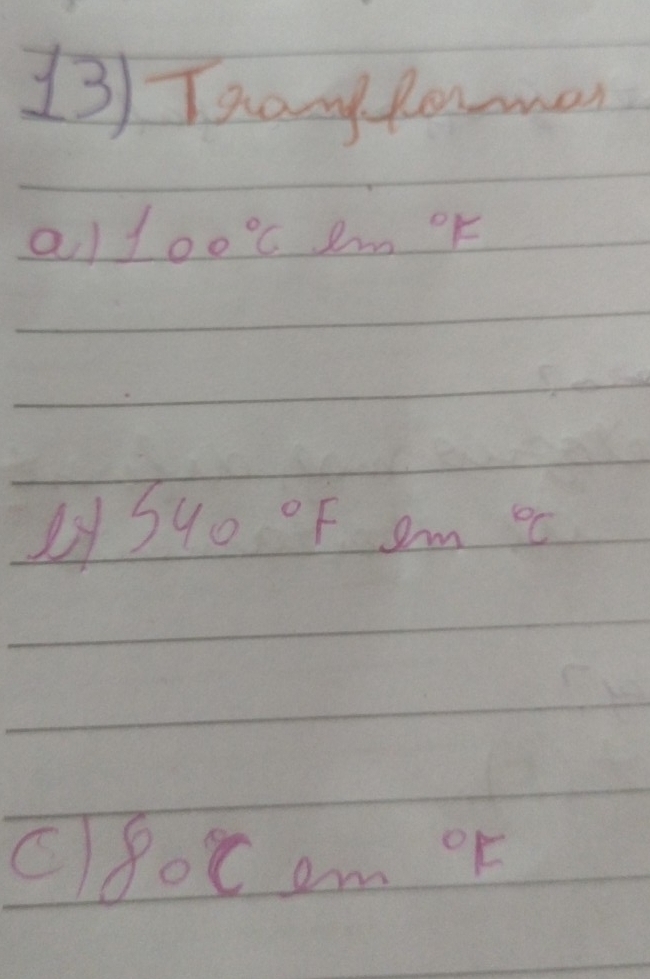 13) Transformar
a) 100°C em °F
b) 540 °F em °C
c) 80°C em °F